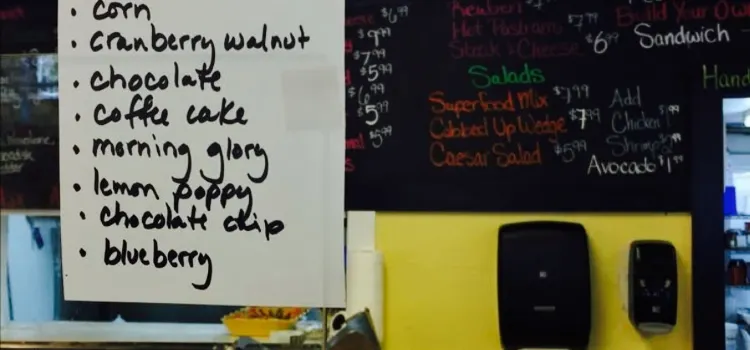 • corn
• cranberry walnut
• chocolate
• coffee cake
• morning glory
• lemon poppy
• chocolate chip
• blueberry
$6.99
$9.99
$7.99
$5.99
$6.99
$5.99
$5.99
Reuben
Hot Pastrami $7.99
Steak & Cheese $6.99
Build Your Own
Sandwich
Salads
Superfood Mix $7.99
Cobbed Up Wedge $7.99
Caesar Salad $5.99
Add
Chicken
Shrimp
Avocado $1.99
Hand